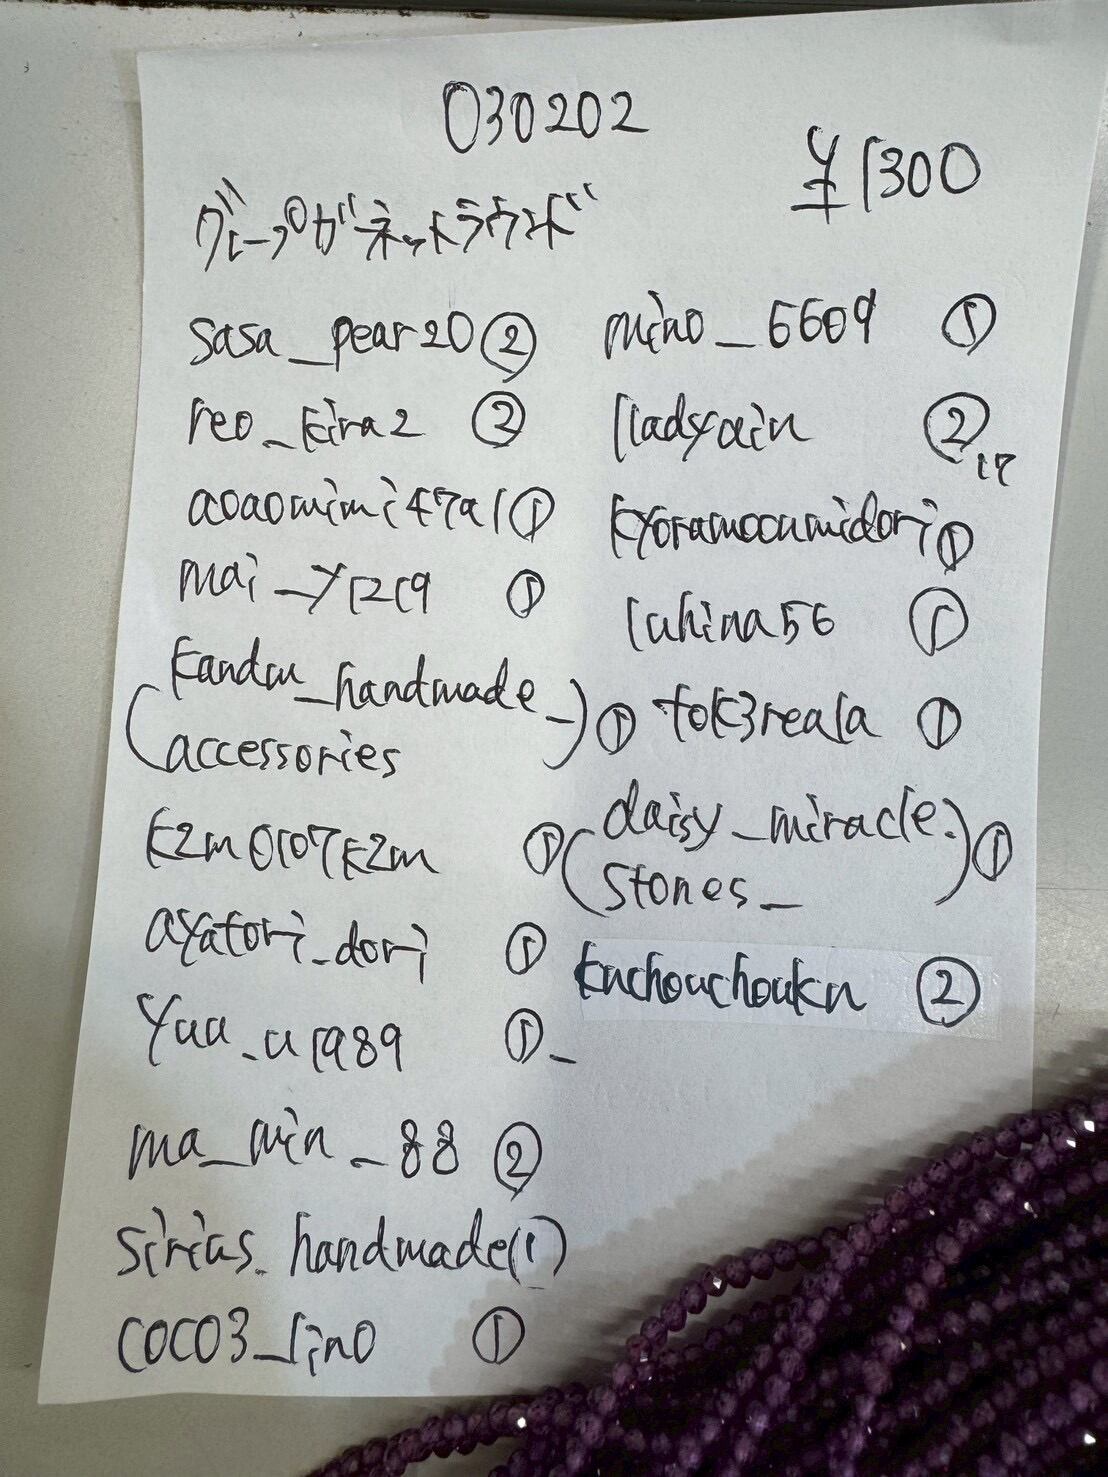 030202
¥1300
グレープガーネットラウンド
sasa_pear20 ②
reo_kira2 ②
aoaomimi47a1 ①
mai_y1219 ①
(kandm_handmade_
accessories) ①
kzm0107kzm ①
ayatori_dori ①
yuu_u1989 ①_
ma_min_88 ②
sirius_handmade ①
coco3_lino ①
mino_6609 ①
lladyain ②
17
kyoramoonmidori ①
luhina56 ①
tok3reala ①
(daisy_miracle.
stones_) ①
kuchouchouku ②